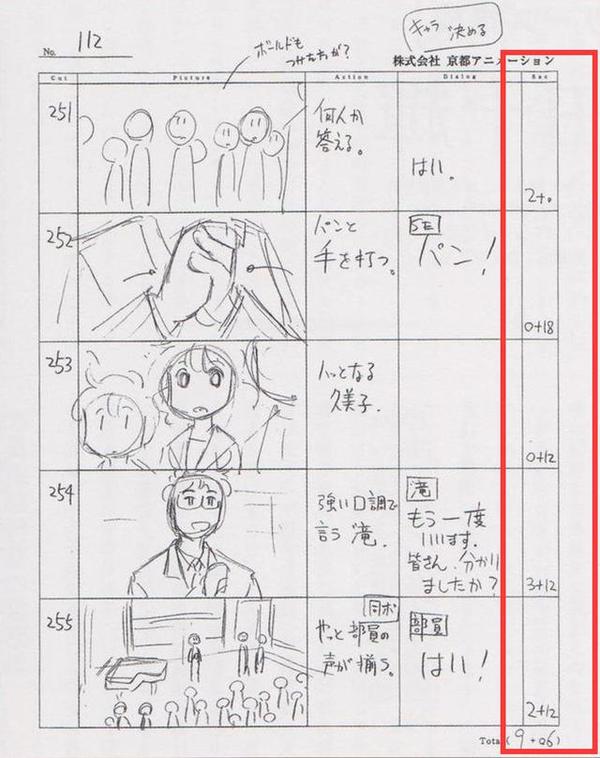 No. 112
キャラ決める
株式会社 京都アニメーション
Cut Picture Action Dialog Sec
251
何人か
答える。
はい。
2+0
252
パンと
手を打つ。
SE
パン!
0+18
253
ハッとなる
久美子.
0+12
254
強い口調で
言う滝.
滝
もう一度
いいます.
皆さん.分かり
ましたか?
3+12
255
同ポ
やっと部員の
声が揃う。
部員
はい!
2+12
Total (9+06)